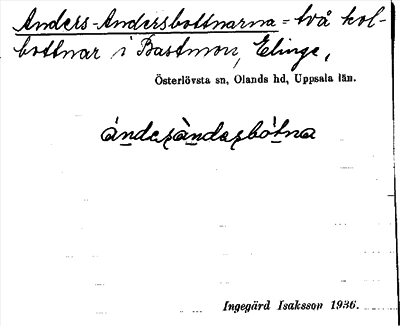 Anders-Andersbottnarna = två kol-
bottnar i Bastmon, Elinge,
Österlövsta sn, Olands hd, Uppsala län.
ándeʂàndeʂbót̀na
Ingegärd Isaksson 1936.